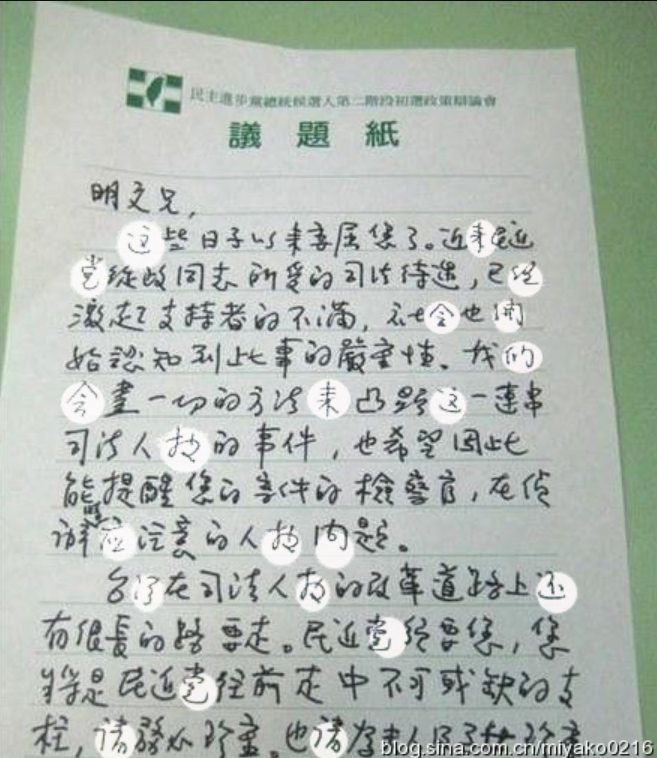 民主進步黨總統候選人第二階段初選政策辯論會
議題紙
明文兄,
这些日子以来委屈您了。近来民近
党從政同志所受的司法待遇,已经
激起支持者的不滿,社会也开
始認知到此事的嚴重性。我们
会盡一切的方法来凸顯这一連串
司法人权的事件,也希望因此
能提醒您的案件的檢察官,在偵
辦時应注意的人权问題。
台湾在司法人权的改革道路上还
有很長的路要走。民近党須要您,您
將是民近党往前走中不可或缺的支
柱,请務必珍重。也请
blog.sina.com.cn/miyako0216